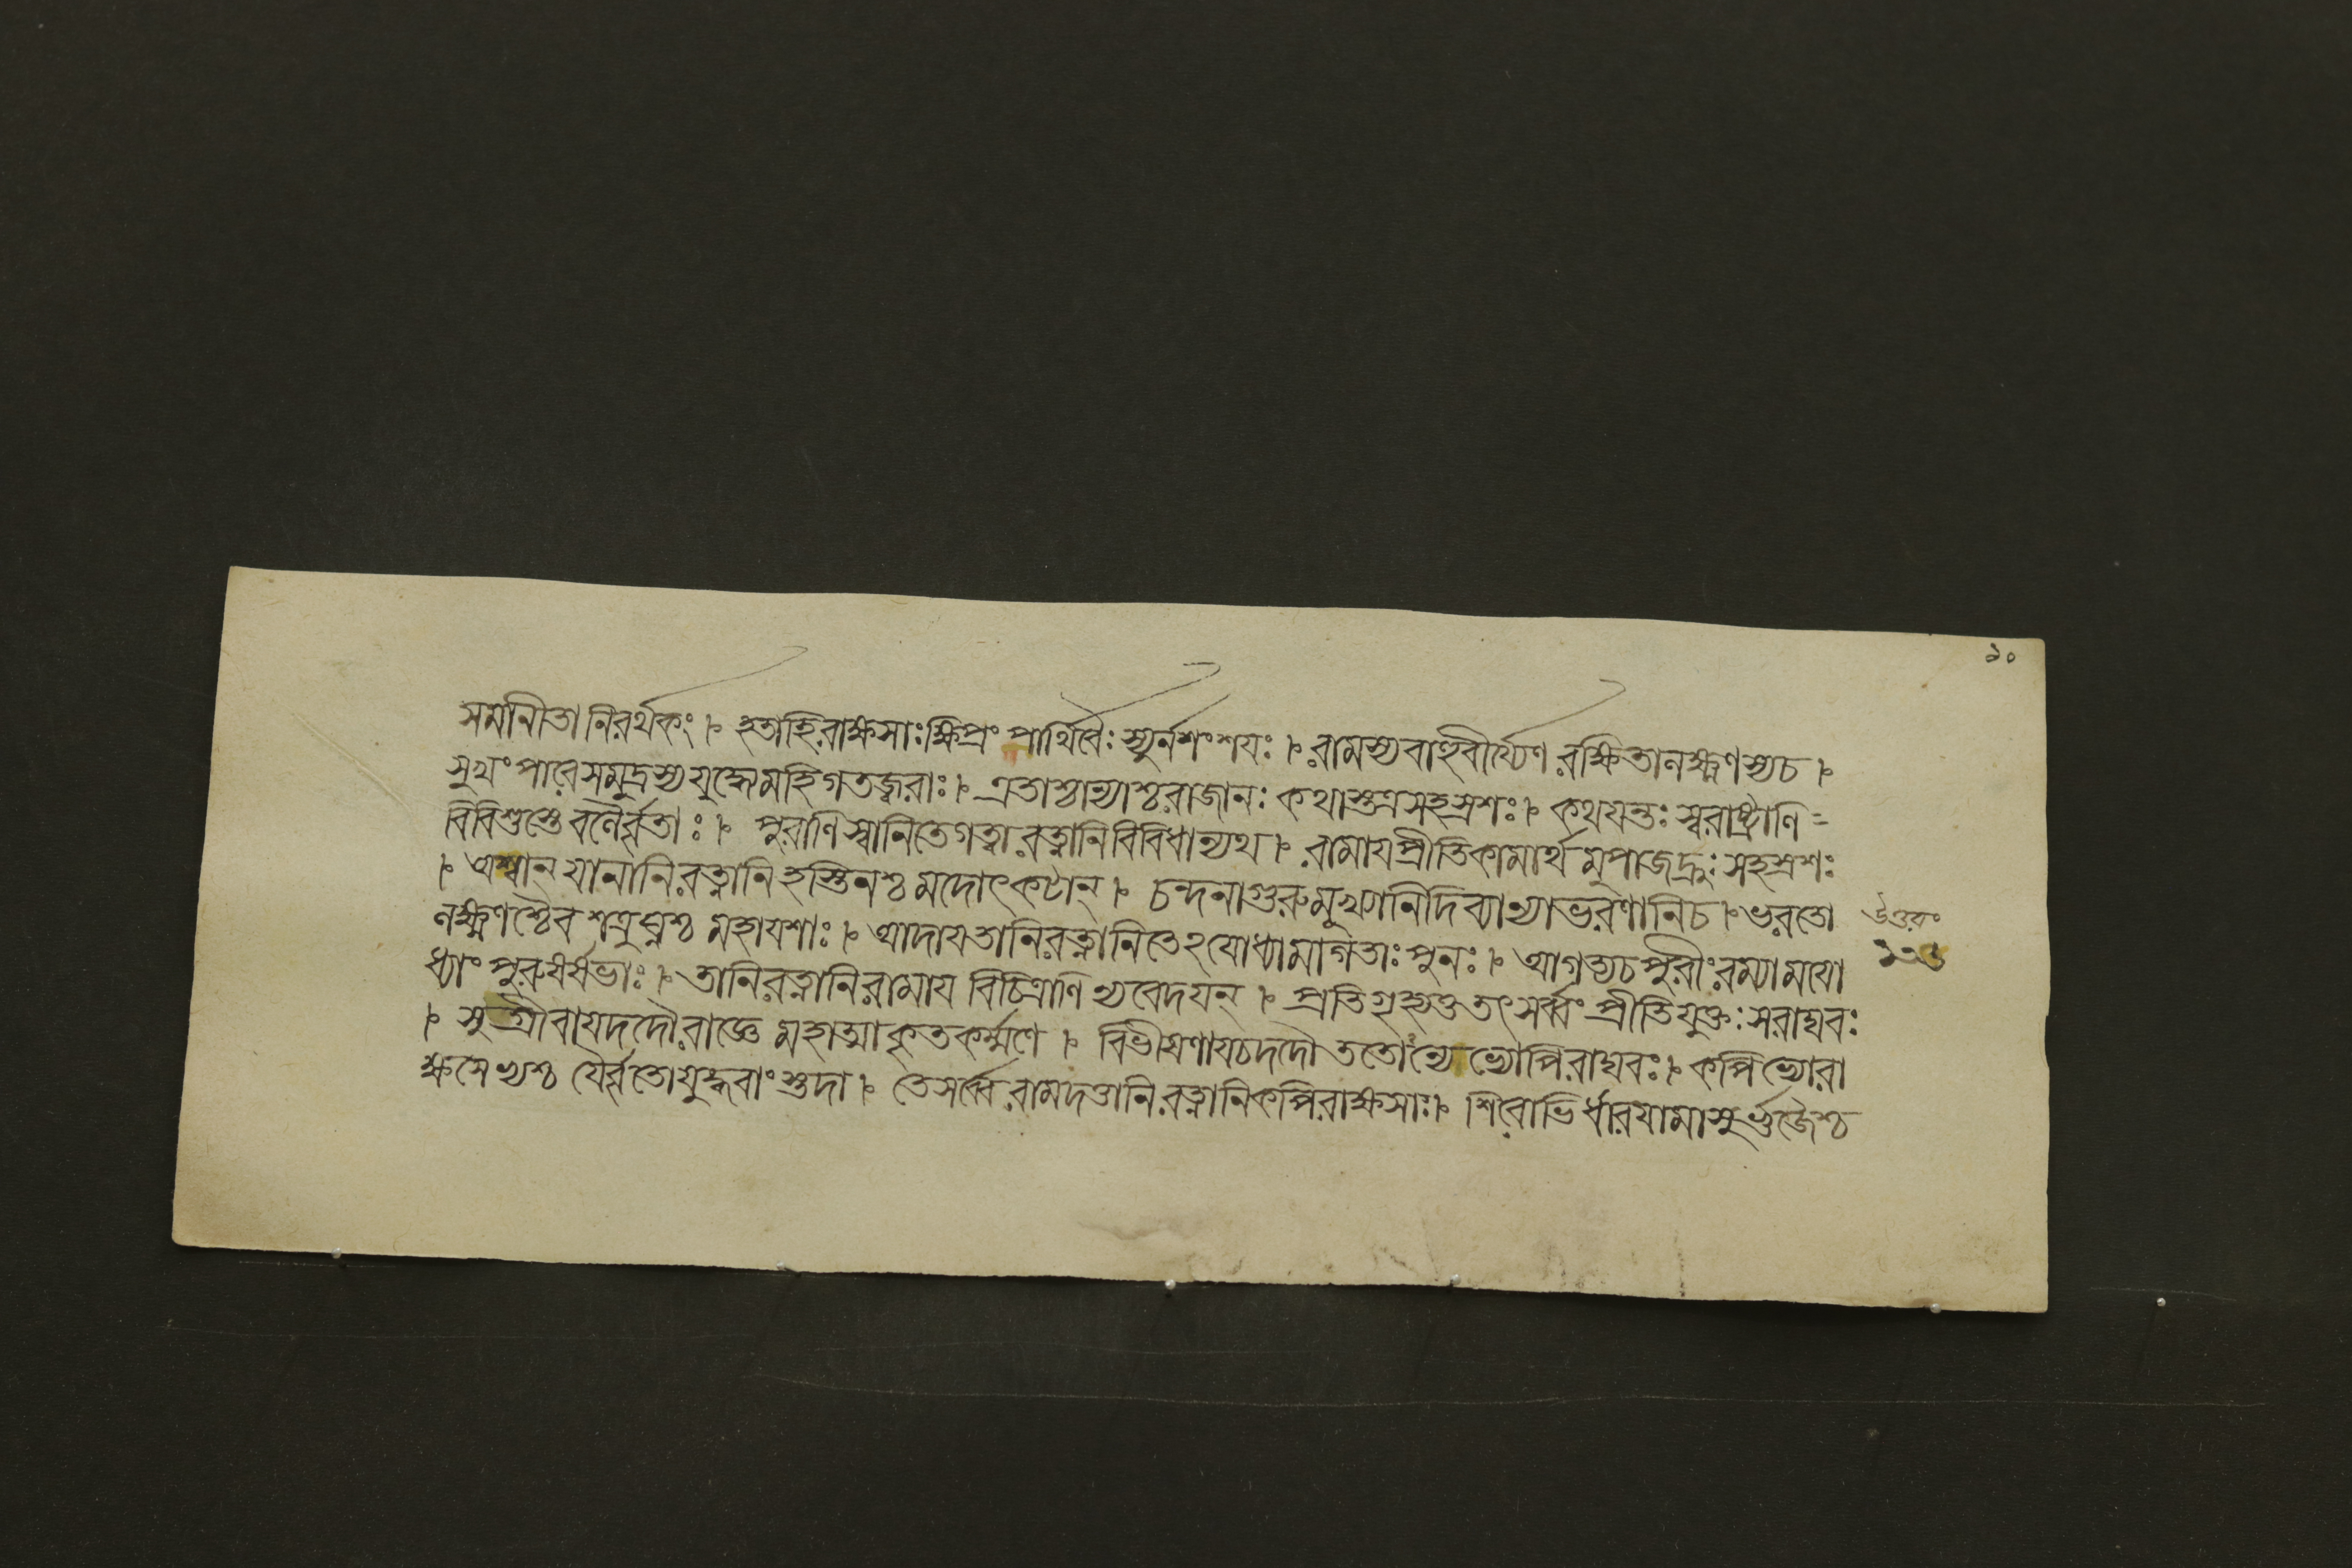 ১০
সমানীতা নিরর্থকং ৷৽ হতাহিরাক্ষসাঃক্ষিপ্রং পার্থিবৈঃ স্যুর্নশংশযঃ ৷৽ রামস্যবাহুবীর্য্যেণ রক্ষিতালক্ষ্মণস্যচ ৷৽
সুখং পারেসমুদ্রস্য যুদ্ধেমহিগতজ্বরাঃ ৷৽ এতাশ্চান্যাশ্চরাজানঃ কথাস্তত্রসহস্রশঃ ৷৽ কথযন্তঃ স্বরাষ্ট্রাণি =
বিবিশুস্তে বলৈর্ব্বৃতাঃ ৷৽ পুরাণি স্বানিতেগত্বা রত্নানি বিবিধান্যথ ৷৽ রামাযপ্রীতিকামার্থ মুপাজহ্রুঃ সহস্রশঃ
৷৽ অশ্বান্ যানানিরত্নানি হস্তিনশ্চ মদোৎকটান্ ৷৽ চন্দনাগুরুমুখ্যানিদিব্যান্যাভরণানিচ ৷৽ ভরতো
লক্ষ্মণশ্চৈব শত্রুঘ্নশ্চ মহাযশাঃ ৷৽ আদাযতানিরত্নানিতেঽযোধ্যামাগতাঃ পুনঃ ৷৽ আগত্যচপুরীং রম্যামযো
উত্তরাং
ধ্যাং পুরুষর্ষভাঃ ৷৽ তানিরত্নানিরামায বিচিত্রাণি ন্যবেদযন্ ৷৽ প্রতিগৃহ্যতু তৎসর্ব্বং প্রীতিযুক্তঃ সরাঘবঃ
৷৽ সুগ্রীবাযদদৌরাজ্ঞে মহাত্মাকৃতকর্ম্মণে ৷৽ বিভীষণাযচদদৌ ততোন্যেভ্যোপিরাঘবঃ ৷৽ কপিভ্যোরা
ক্ষসেভ্যশ্চ যৈর্ব্বৃতোযুদ্ধবাংস্তদা ৷৽ তেসর্ব্বেরামদত্তানিরত্নানিকপিরাক্ষসাঃ ৷৽ শিরোভির্ধারযামাসুর্ভুজৈশ্চ